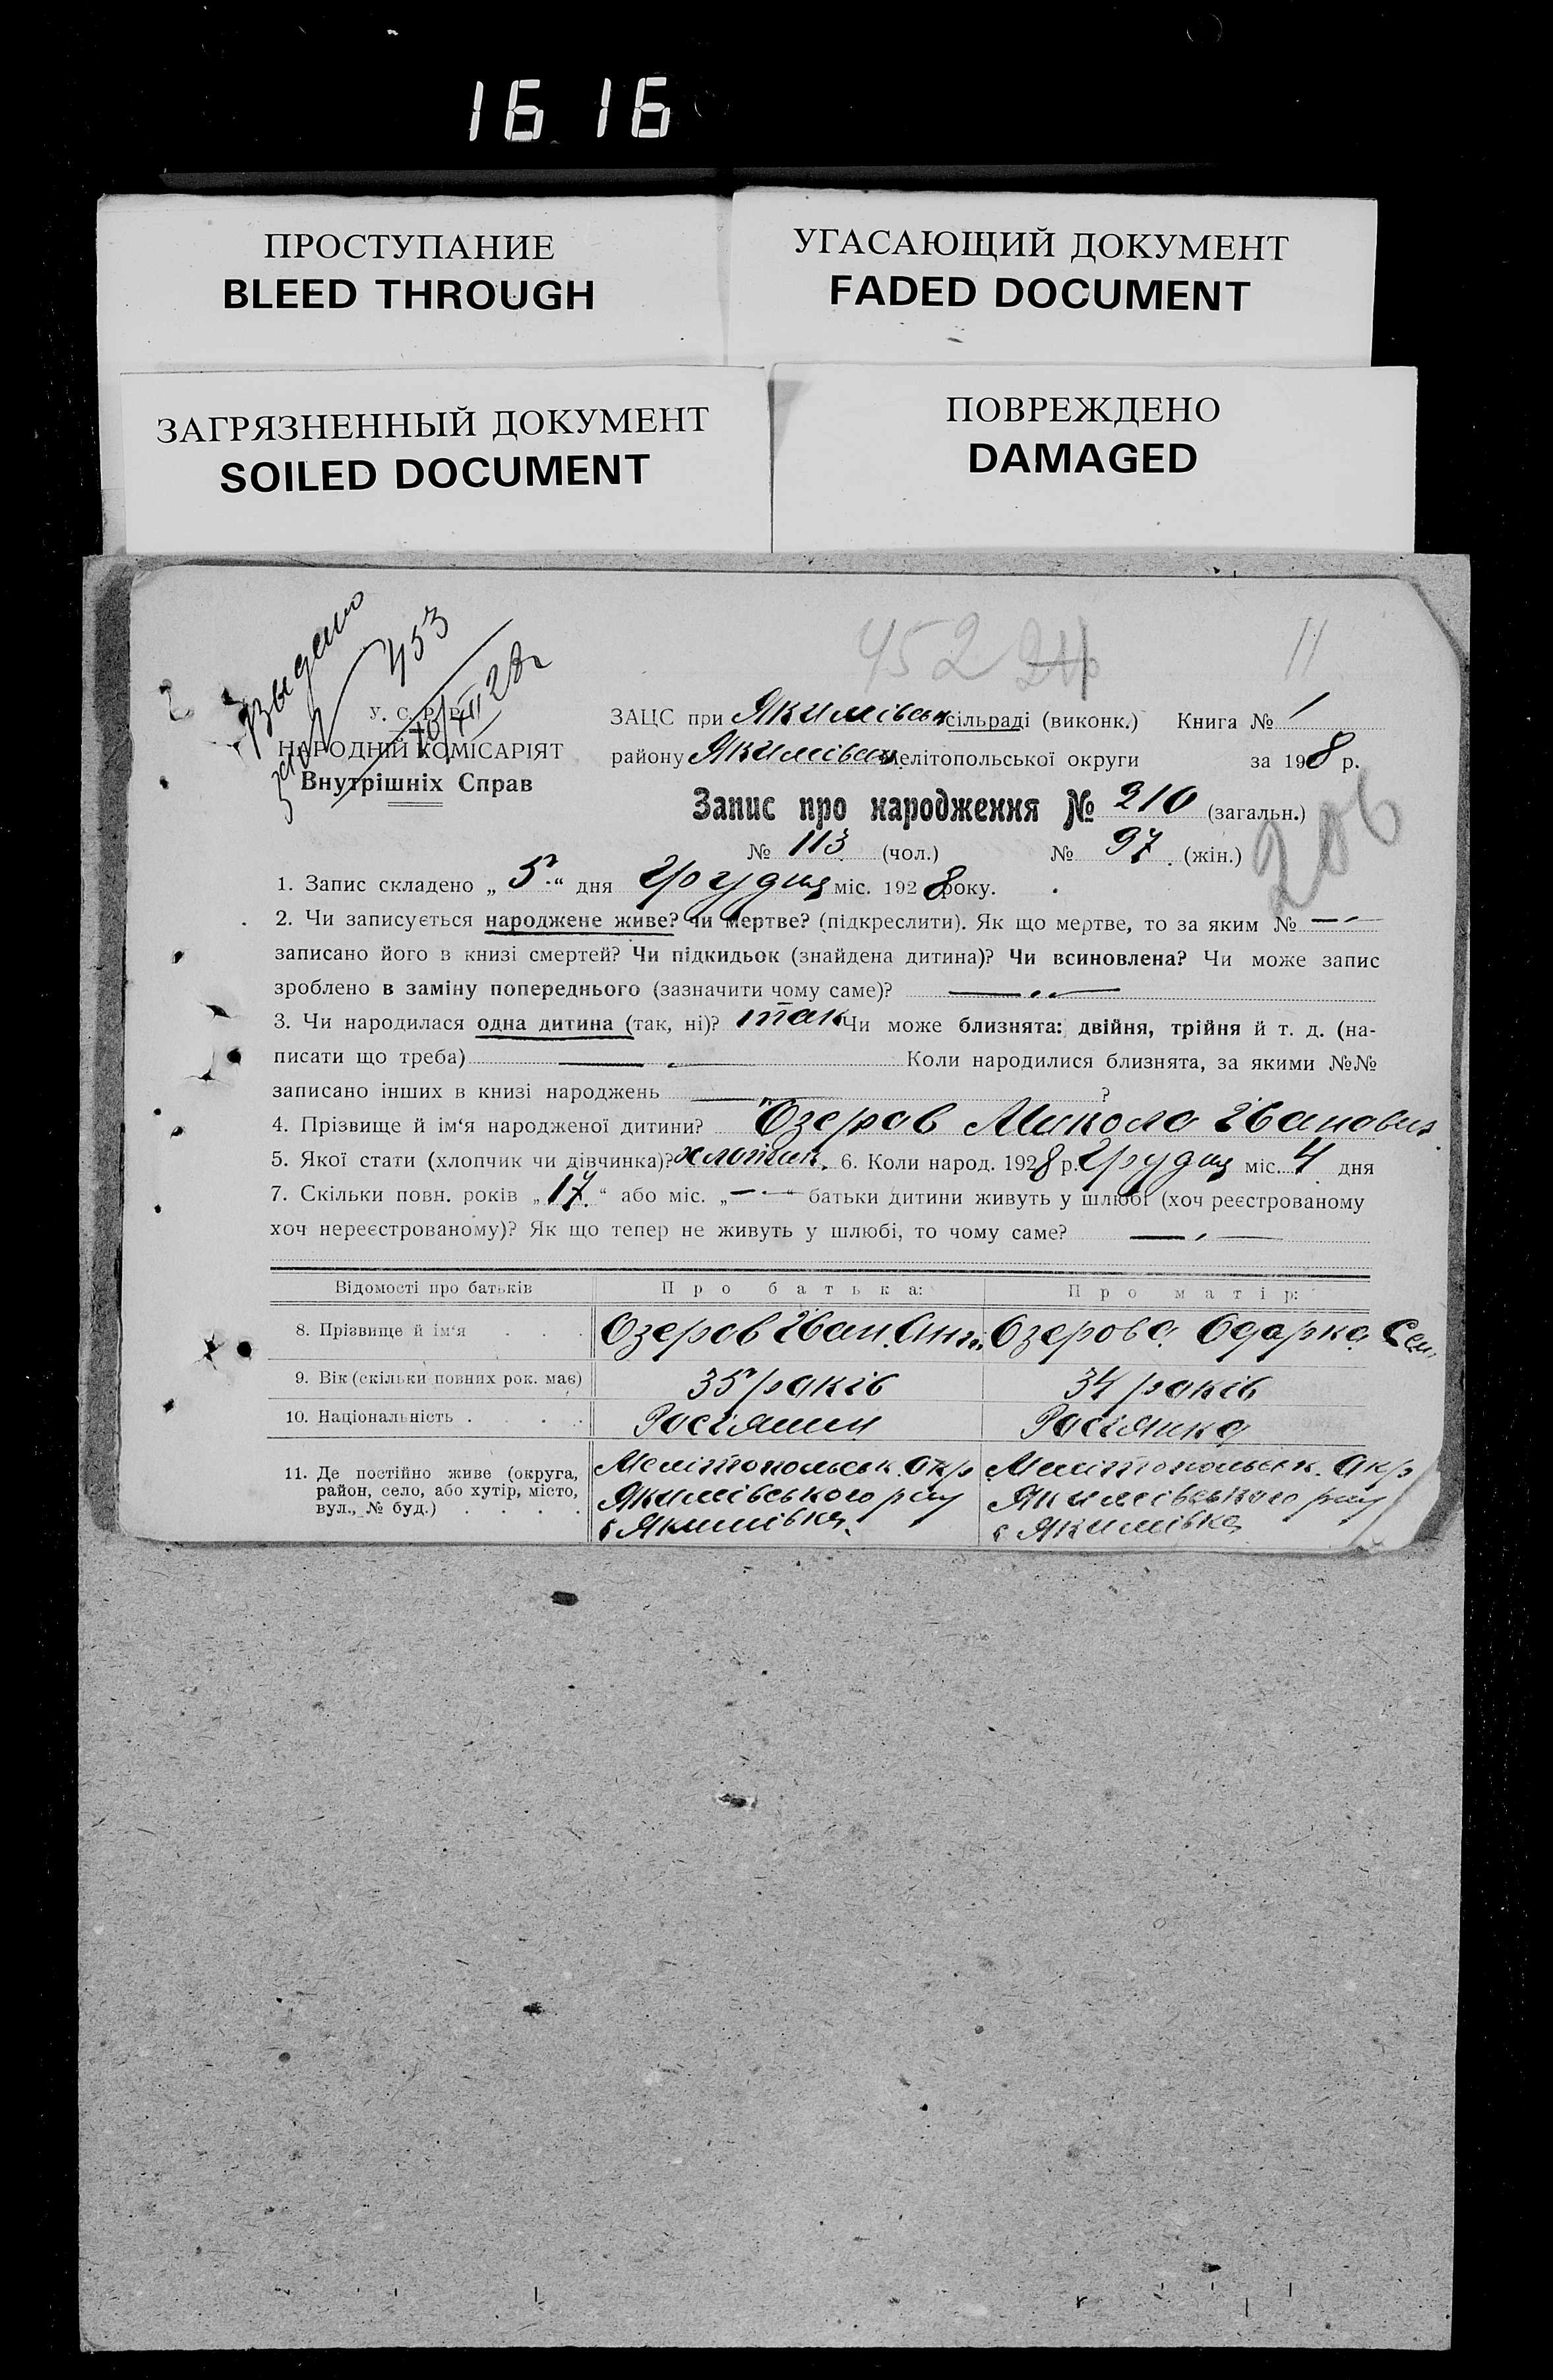 16 16
ПРОСТУПАНИЕ
BLEED THROUGH
УГАСАЮЩИЙ ДОКУМЕНТ
FADED DOCUMENT
ЗАГРЯЗНЕННЫЙ ДОКУМЕНТ
SOILED DOCUMENT
ПОВРЕЖДЕНО
DAMAGED
Выдено
453
10/XII 28г
452 24
11
У. С. Р. Р.
НАРОДНІЙ КОМІСАРІЯТ
Внутрішніх Справ
ЗАЦС при Якимівськ сільраді (виконк.) Книга № 1
району Якимівськ Мелітопольської округи за 1928 р.
Запис про народження № 210 (загальн.)
№ 113 (чол.) № 97 (жін.)
206
1. Запис складено „5“ дня Грудня міс. 1928 року.
2. Чи записується народжене живе? чи мертве? (підкреслити). Як що мертве, то за яким № —
записано його в книзі смертей? Чи підкидьок (знайдена дитина)? Чи всиновлена? Чи може запис
зроблено в заміну попереднього (зазначити чому саме)? —
3. Чи народилася одна дитина (так, ні)? так Чи може близнята: двійня, трійня й т. д. (на-
писати що треба) — Коли народилися близнята, за якими №№
записано інших в книзі народжень — ?
4. Прізвище й ім‘я народженої дитини? Озеров Микола Іванович
5. Якої стати (хлопчик чи дівчинка)? хлопчик. 6. Коли народ. 1928 р. Грудня міс. 4 дня
7. Скільки повн. років „17“ або міс. „—“ батьки дитини живуть у шлюбі (хоч реєстрованому
хоч нереєстрованому)? Як що тепер не живуть у шлюбі, то чому саме? —
Відомості про батьків Про батька: Про матір:
8. Прізвище й ім‘я . . . Озеров Іван Ант. Озерова Одарка Сем.
9. Вік (скільки повних рок. має) 35 років 34 років
10. Національність . . . . Росіянин Росіянка
11. Де постійно живе (округа, район, село, або хутір, місто, вул., № буд.) . . . .
Мелітопольськ. Окр
Якимівського рай
с Якимівка.
Мелітопольськ. Окр
Якимівського рай
с Якимівка